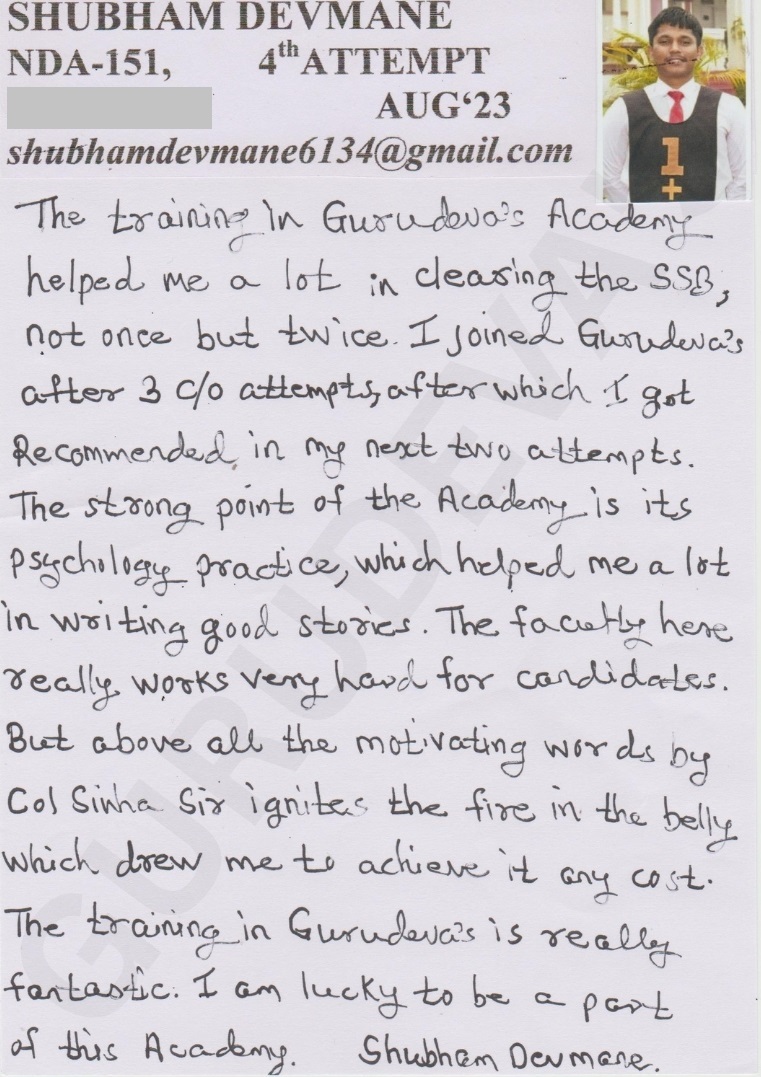 SHUBHAM DEVMANE
NDA-151, 4th ATTEMPT
AUG‘23
shubhamdevmane6134@gmail.com
1
+
The training in Gurudeva's Academy
helped me a lot in clearing the SSB,
not once but twice. I joined Gurudeva's
after 3 c/o attempts, after which I got
Recommended in my next two attempts.
The strong point of the Academy is its
psychology practice, which helped me a lot
in writing good stories. The faculty here
really works very hard for candidates.
But above all the motivating words by
Col Sinha Sir ignites the fire in the belly
which drew me to achieve it any cost.
The training in Gurudeva's is really
fantastic. I am lucky to be a part
of this Academy. Shubham Devmane.
GURUDEVA